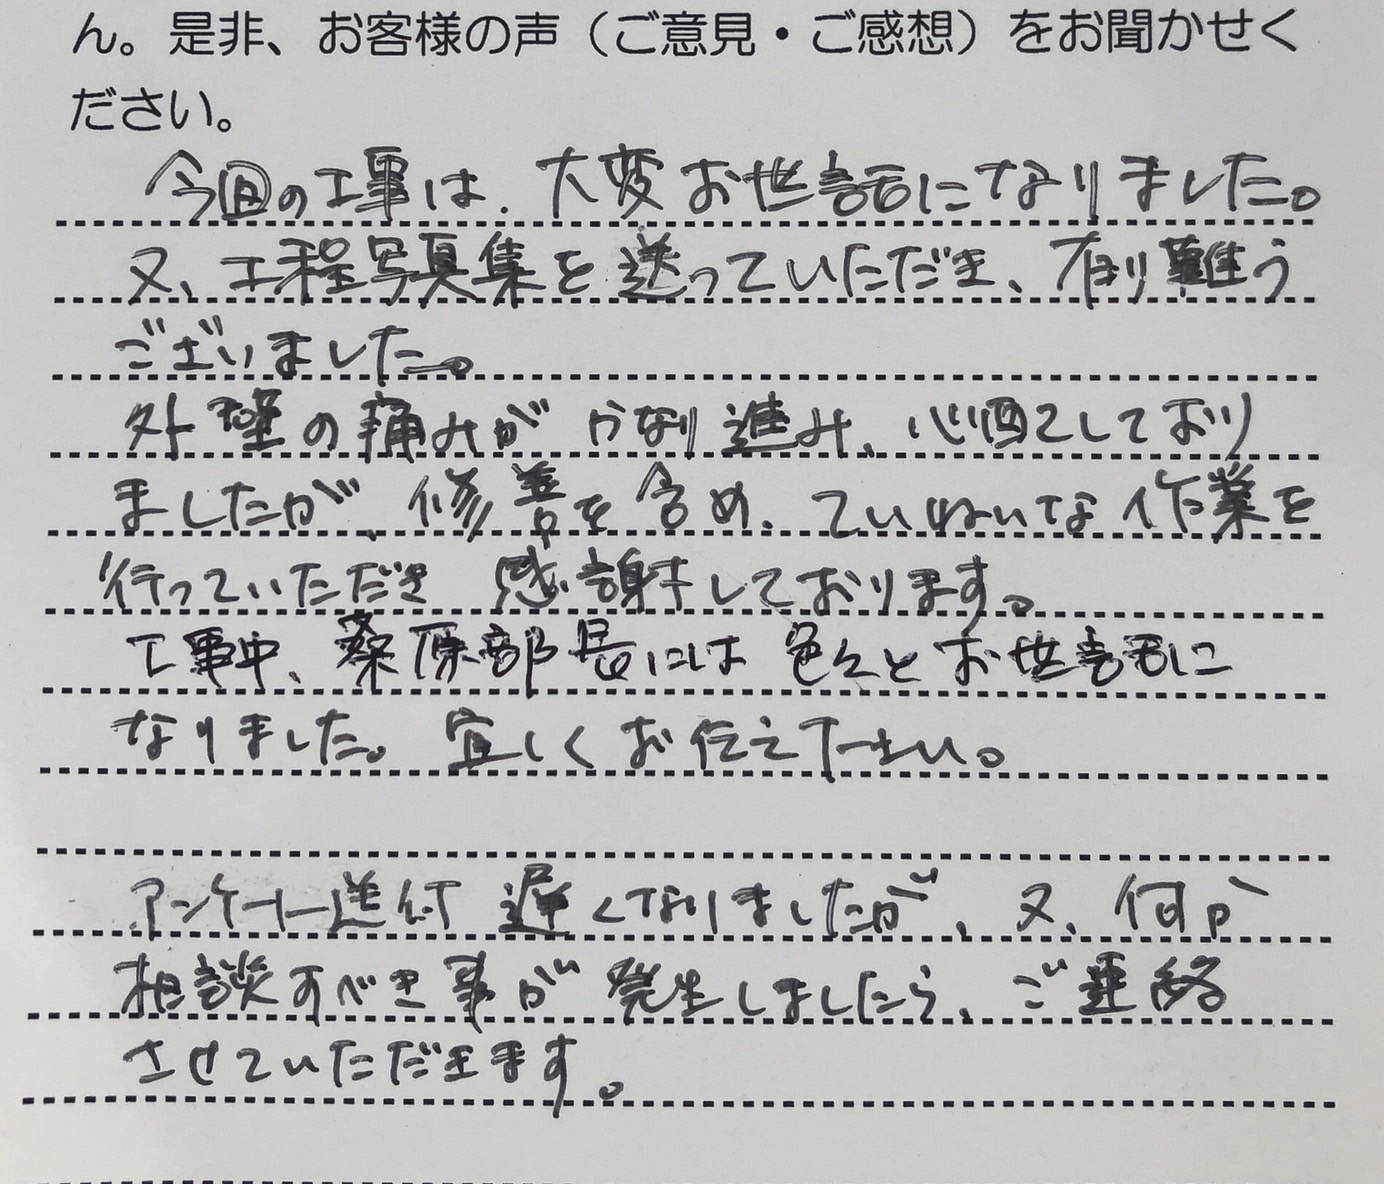 ん。是非、お客様の声（ご意見・ご感想）をお聞かせく
ださい。
今回の工事は、大変お世話になりました。
又、工程写真集を送っていただき、有り難う
ございました。
外壁の痛みがかなり進み、心配しており
ましたが、修善を含め、ていねいな作業を
行っていただき 感謝しております。
工事中、桑原部長には色々とお世話に
なりました。宜しくお伝え下さい。
アンケート送付 遅くなりましたが、又、何か
相談すべき事が発生しましたら、ご連絡
させていただきます。